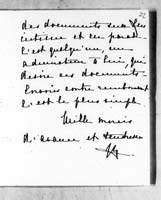 22
des documents sur les
c'est quelqu'un, un
admirateur à lui, qui
désire ces documents
Envois contre remboursement
c'est le plus simple
Mille mercis
d'avance et tendresse